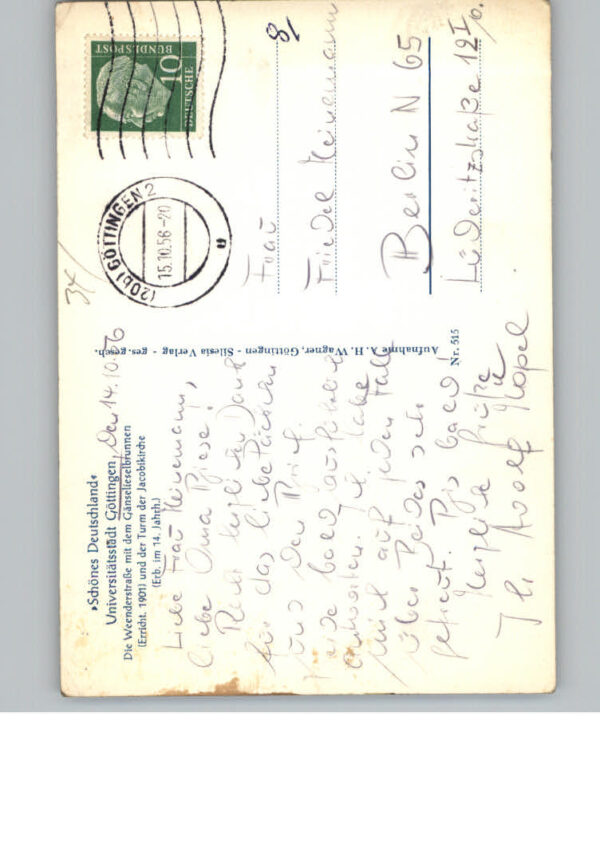 »Schönes Deutschland«
Universitätsstadt Göttingen, den 14.10.56
Die Weenderstraße mit dem Gänselieselbrunnen
(Erricht. 1901) und der Turm der Jacobikirche
(Erb. im 14. Jahrh.)
Liebe Frau Heinemann,
liebe Oma Briese!
Recht herzlichen Dank
für das liebe Päckchen
und den Brief.
bald ausführlich
antworten. Ich habe
mich auf jeden Fall
über Beides sehr
gefreut. Bis bald!
Herzliche Grüße
Ihr Adolf
Aufnahme A. H. Wagner, Göttingen - Silesia Verlag - ges. gesch.
Nr. 515
34/
(20b) GÖTTINGEN 2
15.10.56-20
u
DEUTSCHE
BUNDESPOST
10
18
Frau
Friedel Heinemann
Berlin N 65
Lüderitzstraße 12 I